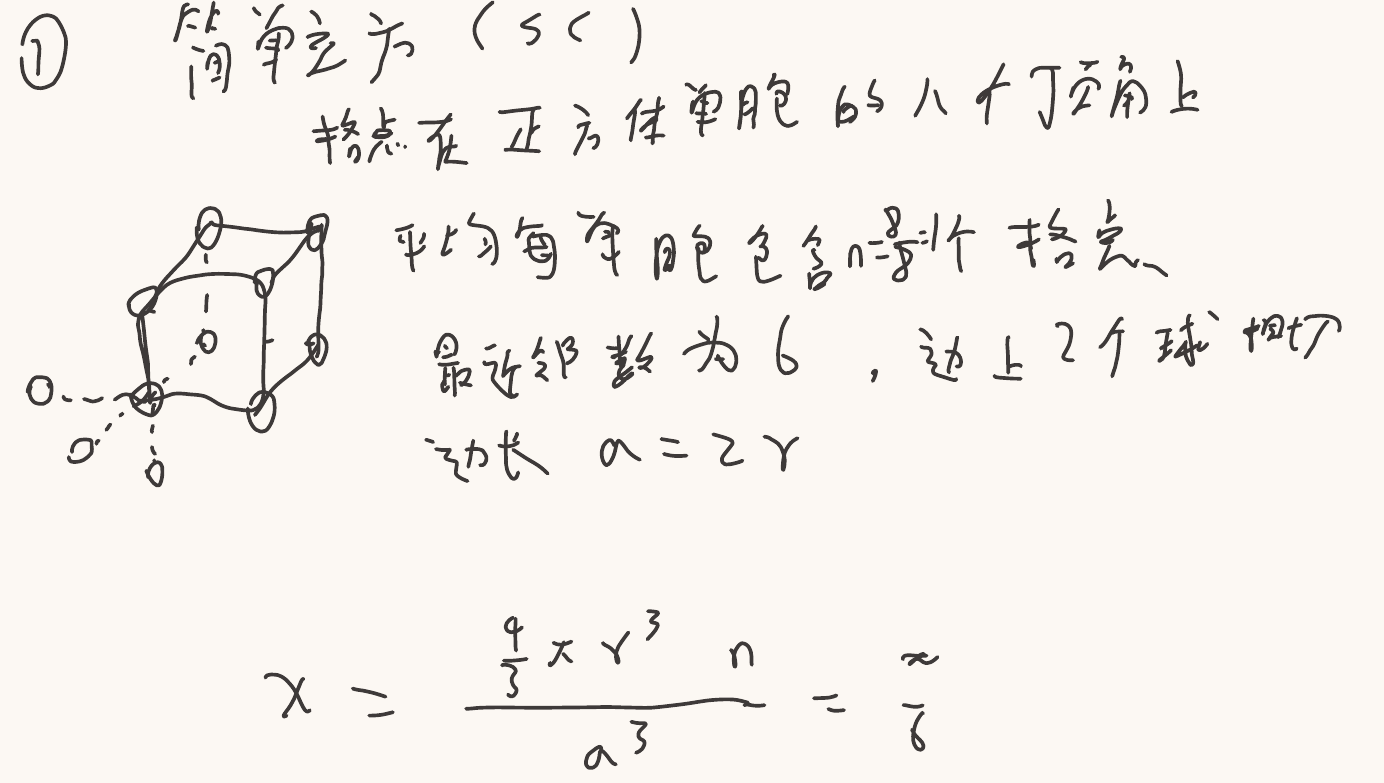 ① 简单立方（sc）
格点在正方体单胞的八个顶角上
平均每单胞包含n=8/8=1个格点、
最近邻数为6，边上2个球相切
边长 a=2r
x = (4/3 π r³ n) / a³ = π/6